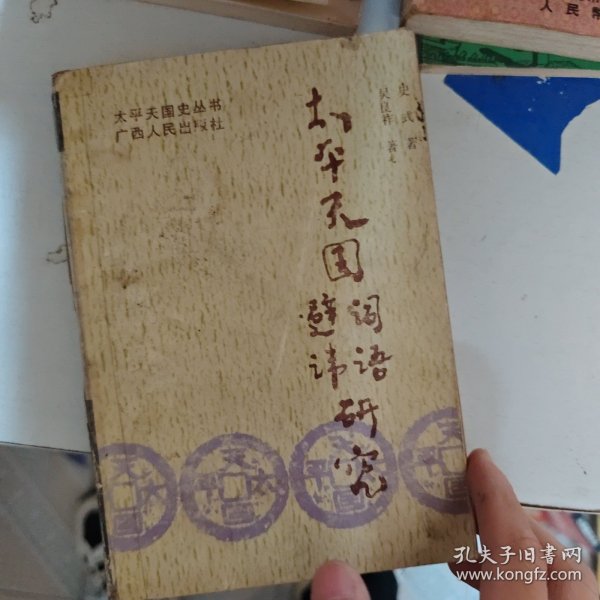 人民
太平天国史丛书
广西人民出版社
史式 著
吴良祚 著
太平天国
词语
避讳
研究
孔夫子旧书网
www.kongfz.com